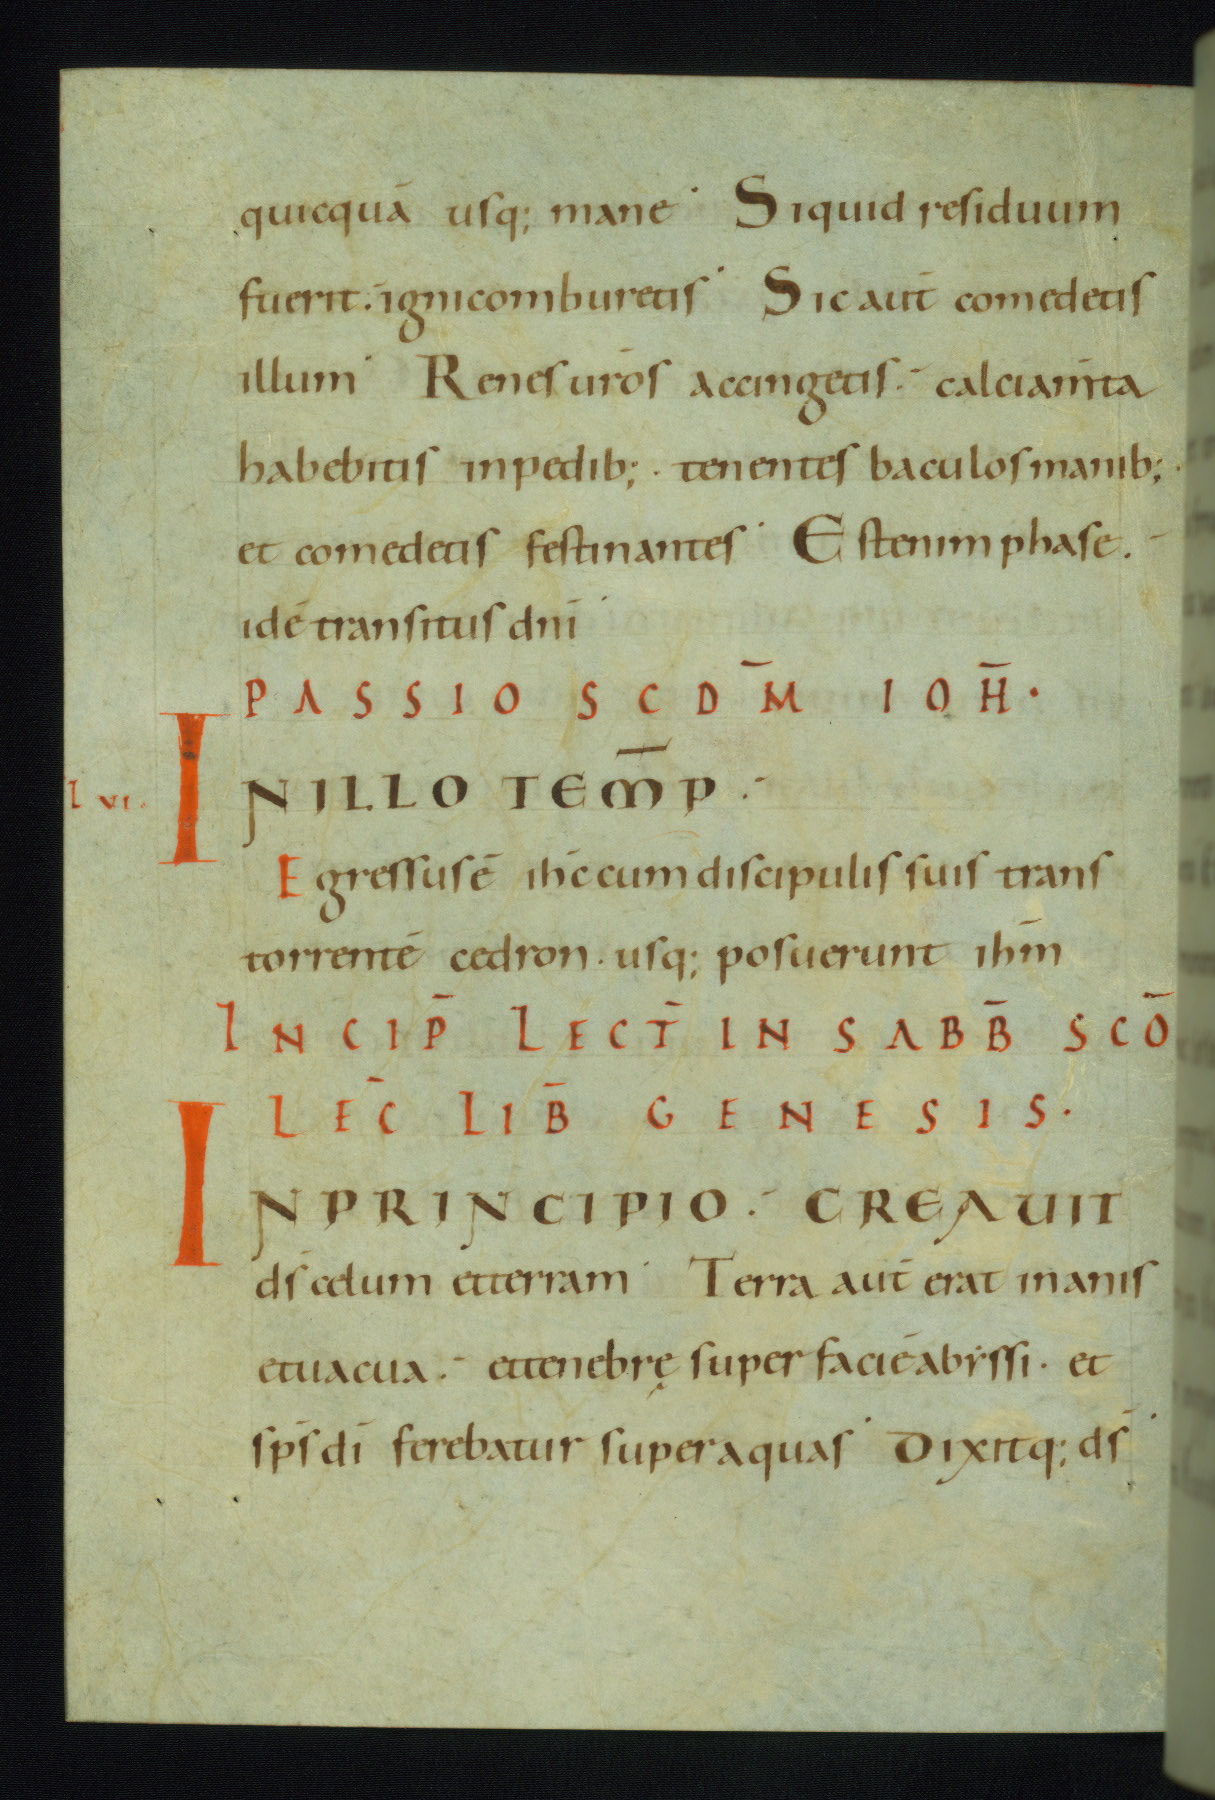 quicquā usq; mane· Siquid residuum
fuerit· ignicomburetis· Sic aut̄ comedetis
illum· Renes ur̄os accingetis· calciam̄ta
habebitis inpedib;· tenentes baculos manib;·
et comedetis festinantes· Est enim phase·
idē transitus dn̄i·
PASSIO SCDM̄ IOH̄·
LVI· IN ILLO TEM̄P·
Egressus ē ih̄c cum discipulis suis trans
torrentē cedron· usq; posuerunt ih̄m
INCIP̄ LECT̄ IN SABB̄ SCŌ
LEC̄ LIB̄ GENESIS·
IN PRINCIPIO· CREAUIT
ds̄ celum et terram· Terra aut̄ erat inanis
et uacua· et tenebrę super faciē abẏssi· et
sp̄s dī ferebatur super aquas· Dixitq; ds̄